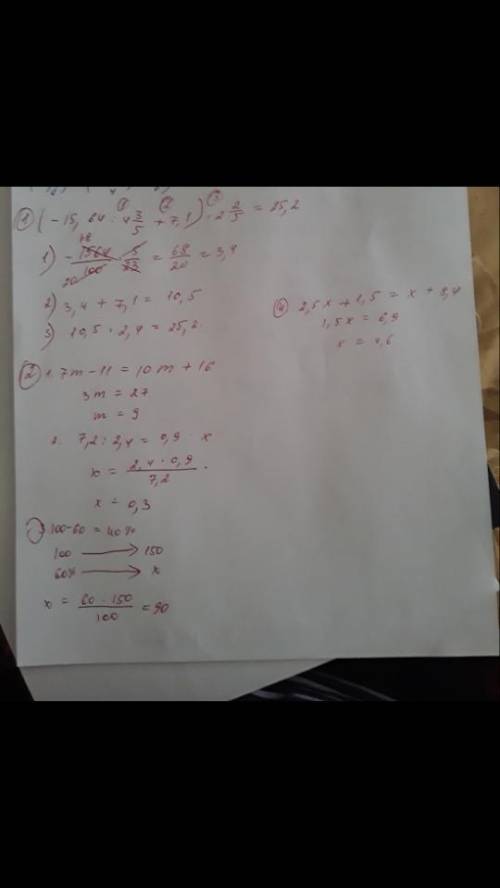 ① (-15,64 : 4 3/5 + 7,1) · 2 2/5 = 25,2
1) - 1564/100 · 5/23 = 68/20 = 3,4
2) 3,4 + 7,1 = 10,5
3) 10,5 · 2,4 = 25,2
② 1. 7m - 11 = 10m + 16
3m = 27
m = 9
2. 7,2 : 2,4 = 0,9 : x
x = 2,4 · 0,9 / 7,2
x = 0,3
100-60 = 40%
100 → 150
60% → x
x = 60 · 150 / 100 = 90
④ 2,5x + 1,5 = x + 8,4
1,5x = 6,9
x = 4,6